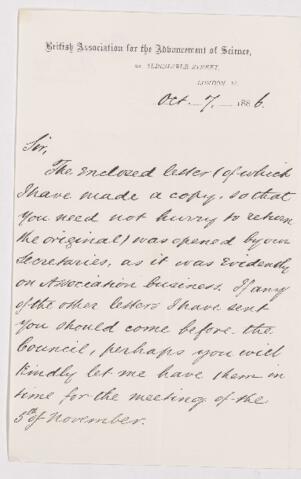 British Association for the Advancement of Science,
22 ALBEMARLE STREET,
LONDON W.
Oct. 7, 1886.
Sir,
The enclosed letter (of which
I have made a copy, so that
you need not hurry to return
the original) was opened by our
Secretaries, as it was evidently
on Association business. If any
of the other letters I have sent
you should come before the
Council, perhaps you will
kindly let me have them in
time for the meeting of the
5th of November.